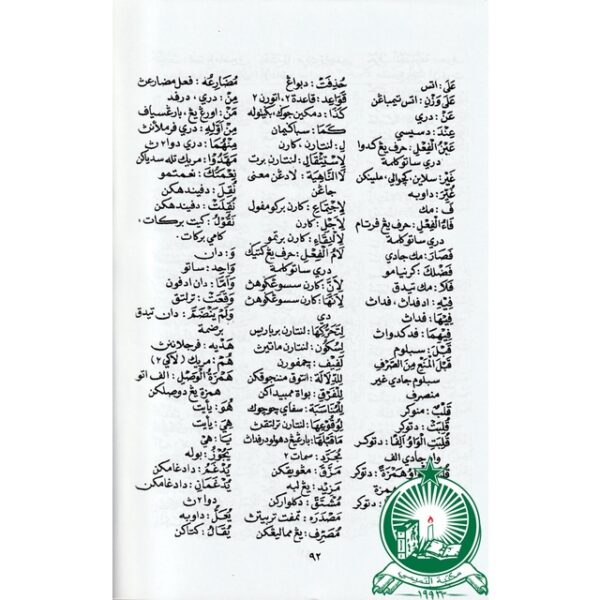 عَلَى : اتس
عَلَى وَزْنِ : اتس تيمباڠن
عَنْ : دري
عِنْدَ : دسيسي
عَيْنُ الْفِعْلِ : حرف يڠ كدوا
دري ساتو كلمة
غَيْر : سلاين، كچوالي، ملينكن
غُيِّرَ : داوبه
فَ : مك
فَاءُ الْفِعْلِ : حرف يڠ فرتام
دري ساتو كلمة
فَصَارَ : مك جادي
فَضْلُكَ : كرنيامو
فَلَا : مك تيدق
فِيْهِ : ادفداڽ، فداڽ
فِيْهَا : فداڽ
فِيْهِمَا : فدكدواڽ
قَبْلَ : سبلوم
قَبْلَ الْمَنْعِ مِنَ الصَّرْفِ
سبلوم جادي غير
منصرف
قَلْبُ : منوكر
قُلِبَتْ : دتوكر
قُلِبَتِ الْوَاوُ اَلِفًا : دتوكر
واو جادي الف
هَمْزَةً : دتوكر
همزة
دتوكر
حُذِفَتْ : دبواڠ
قَوَاعِد : قاعدة٢، اتورن٢
كَذَا : دمكين جوك، بكيتوله
كَمَا : سباكيمان
لِ : لنتارن، كارن
لِاسْتِثْقَالِ : لنتارن برت
لَا النَّاهِيَة : لا دڠن معنى
جاڠن
لِاجْتِمَاعِ : كارن بركومفول
لِاَجْلِ : كارن
لِالْتِقَاءِ : كارن برتمو
لَامُ الْفِعْلِ : حرف يڠ كتيك
دري ساتو كلمة
لِاَنَّ : كارن سسوڠكوهڽ
لِاَنَّهَا : كارن سسوڠكوهڽ
دي
لِتَحَرُّكِهَا : لنتارن برباريس
لِسُكُوْنِ : لنتارن ماتيڽ
لَفِيْف : چمفورن
لِلدِّلَالَةِ : انتوق منونجوقكن
لِلْفَرْقِ : بواة ممبيداكن
لِلْمُنَاسَبَة : سفاي چوچوك
لِوُقُوْعِهَا : لنتارن ترلتقڽ
مَاقَبْلَهَا : بارڠ يڠ دهولو درفداڽ
مُجَرَّد : سمات٢
مَزِيْد : يڠ لبه
مُشْتَقّ : دكلواركن
مَصْدَرِه : تمفت تربيتڽ
مُصَرِّف : يڠ مماليڠكن
مُضَارِعُه : فعل مضارعڽ
مِنْ : دري، درفد
مِنْ اَوَّلِهِ : دري فرملاءنڽ
مِنْهُمَا : دري دواڽ
مَهَّدُوْا : مريك تله سدياكن
نِعْمَتُكَ : نعمتمو
نُقِلَ : دفيندهكن
نُقِلَتْ : دفيندهكن
نَقُوْلُ : كيت بركات،
كامي بركات.
وَ : دان
وَاحِد : ساتو
وَاَمَّا : دان ادفون
وَقَعَتْ : ترلتق
وَلَمْ يَنْضَمَّ : دان تيدق
برضمة
هُمْ : مريك (لاكي٢)
هَمْزَةُ الْوَصْلِ : الف اتو
همزة يڠ دوصلكن
هُوَ : يأيت
هِيَ : يأيت
يَا : هي
يَجُوْزُ : بوله
يُدْغَمُ : دادغامكن
يُدْغَمَانِ : دادغامكن
دواڽ
يُعَلُّ : داوبه
يُقَالُ : كتاكن
٩٢
مكتبة